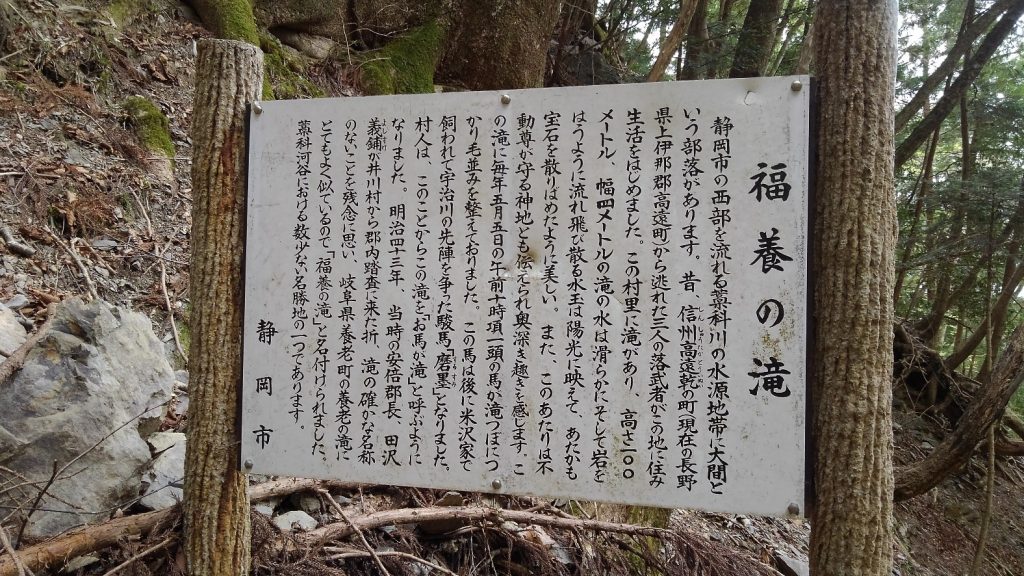 福養の滝
静岡市の西部を流れる藁科川の水源地帯に大間と
いう部落があります。昔、信州高遠乾の町(現在の長野
県上伊那郡高遠町)から逃れた三人の落武者がこの地に住み
生活をはじめました。この村里に滝があり、高さ一〇〇
メートル、幅四メートルの滝の水は滑らかにそして岩を
はうように流れ飛び散る水玉は陽光に映えて、あたかも
宝石を散りばめたように美しい。また、このあたりは不
動尊が守る神地とも伝えられ奥深き趣きを感じます。こ
の滝に毎年五月五日の午前十時頃一頭の馬が滝つぼにつ
かり毛並みを整えておりました。この馬は後に米沢家で
飼われて宇治川の先陣を争った駿馬「磨墨」となりました。
村人は、このことからこの滝を「お馬が滝」と呼ぶように
なりました。明治四十三年 当時の安倍郡長、田沢
義鋪が井川村から郡内踏査に来た折、滝の確かな名称
のないことを残念に思い、岐阜県養老町の養老の滝に
とてもよく似ているので「福養の滝」と名付けられました。
藁科河谷における数少ない名勝地の一つであります。
静岡市